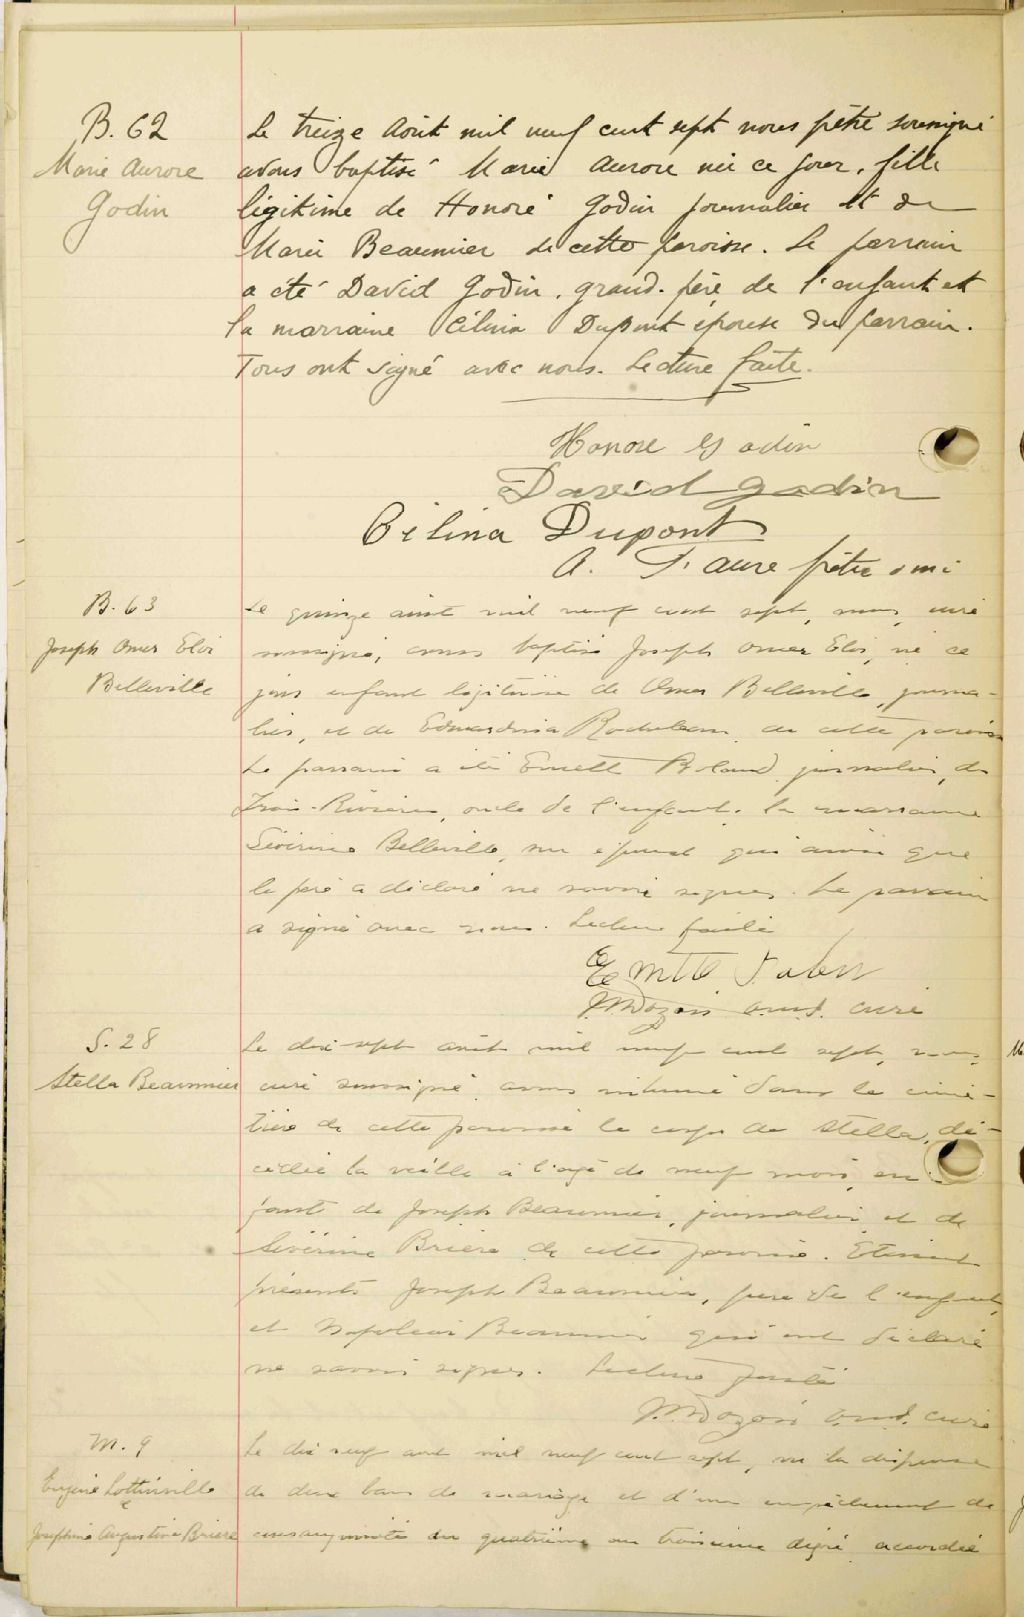 B. 62
Marie Aurore
Godin
Le treize Août mil neuf cent sept nous prêtre soussigné
avons baptisé Marie Aurore née ce jour, fille
légitime de Honoré Godin journalier et de
Marie Beaumier de cette paroisse. Le parrain
a été David Godin, grand-père de l'enfant et
la marraine Célina Dupont épouse du parrain.
Tous ont signé avec nous. Lecture faite.
Honoré Godin
David Godin
Célina Dupont
A. Faure prêtre o m i
B. 63
Joseph Omer Eloi
Belleville
Le quinze août mil neuf cent sept, nous, curé
soussigné, avons baptisé Joseph Omer Eloi, né ce
jour enfant légitime de Omer Belleville, journa-
lier, et de Edwardina de cette paroisse
Le parrain a été journalier, de
Trois-Rivières, oncle de l'enfant, la marraine
Séverine Belleville, son épouse qui ainsi que
le père a déclaré ne savoir signer. Le parrain
a signé avec nous. Lecture faite
o.m.i. curé
S. 28
Stella Beaumier
Le dix-sept août mil neuf cent sept, nous,
curé soussigné, avons inhumé dans le cime-
tière de cette paroisse le corps de Stella, dé-
cédée la veille à l'âge de neuf mois, en-
fant de Joseph Beaumier, journalier, et de
Séverine Brière de cette paroisse. Etaient
présents Joseph Beaumier, père de l'enfant,
et Napoléon Beaumier qui ont déclaré
ne savoir signer. Lecture faite
o.m.i. curé
M. 9
Eugène Lottinville
&
Joséphine Augustine Brière
Le dix neuf août mil neuf cent sept, vu la dispense
de deux bans de mariage et d'un empêchement de
consanguinité du quatrième au troisième degré accordée